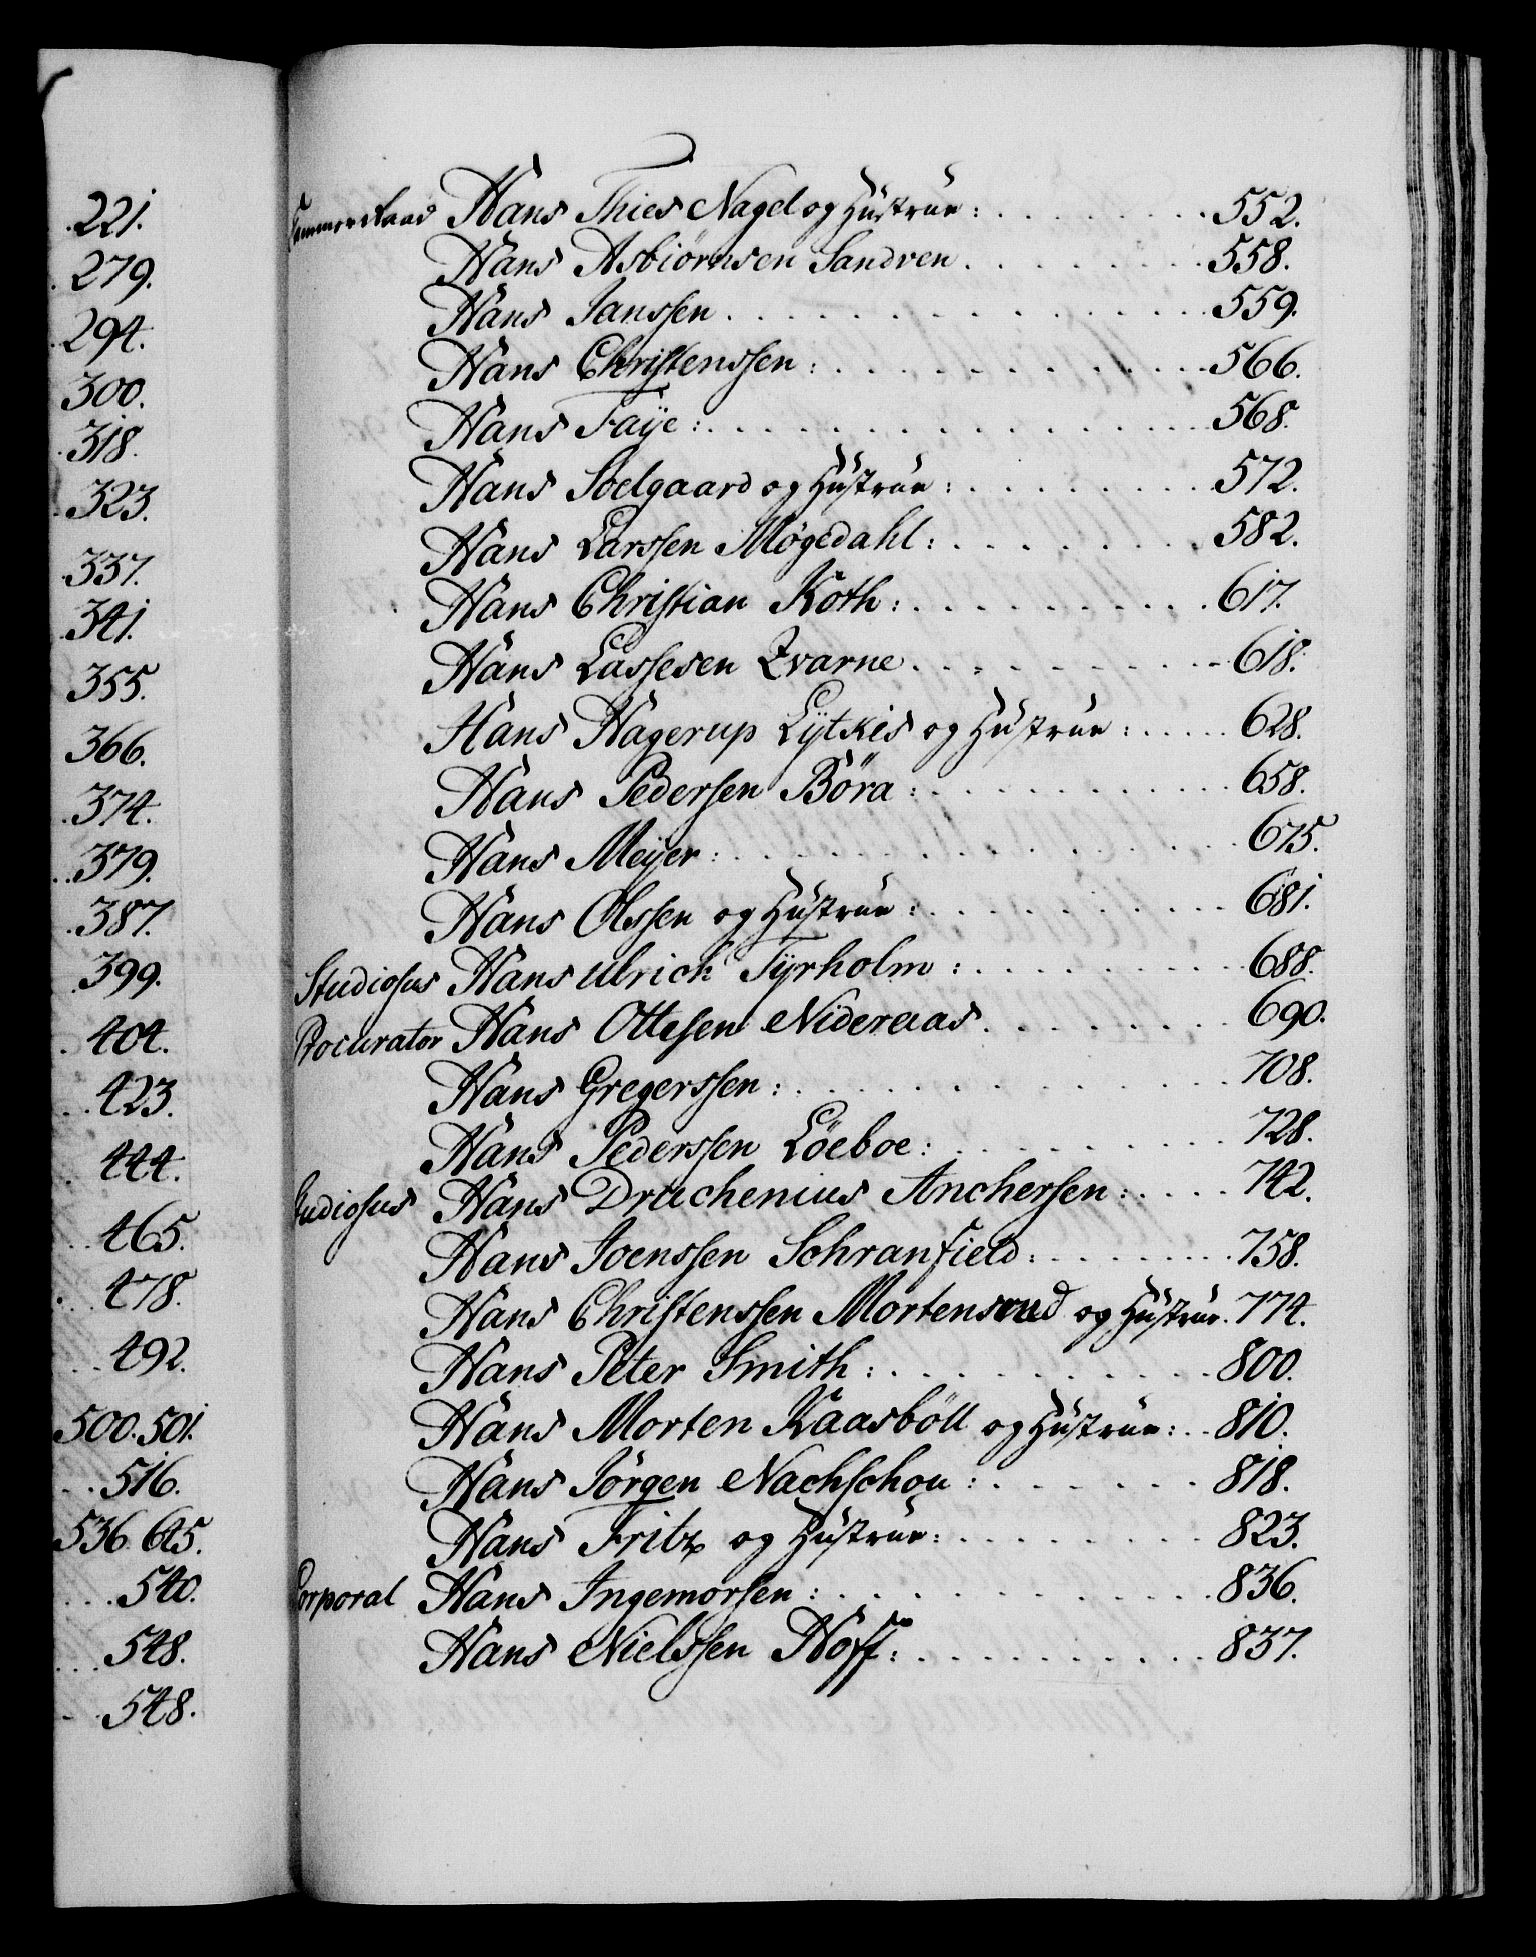 221.
279.
294.
300.
318.
323.
337.
341.
355.
366.
374.
379.
387.
399.
404.
423.
444.
465.
478.
492.
500. 501.
516.
536 645.
540.
548.
548.
Hans Thies Nagel og Hustrue: 552.
Hans Asbiørnsen Sandven 558.
Hans Janssen 559.
Hans Christenssen: 566.
Hans Faÿe: 568.
Hans Soelgaard og Hustrue: 572.
Hans Larssen Møgedahl: 582.
Hans Christian Koth: 617.
Hans Lassesen Qvarne 618.
Hans Hagerup Lÿtkis og Hustrue: 628.
Hans Pedersen Böra: 658.
Hans Meÿer: 675.
Hans Olssen og Hustrue: 681.
Studiosus Hans Ulrich Tÿrholm: 688.
Procurator Hans Ottesen Nideraas 690.
Hans Gregerssen: 708.
Hans Pederssen Löeboe: 728.
Studiosus Hans Drachenius Anchersen: 742.
Hans Joenssen Schranfield: 758.
Hans Christenssen Mortensrud og Hustrue 774.
Hans Peter Smith: 800.
Hans Morten Kaasböll og Hustrue: 810.
Hans Jörgen Nachschou: 818.
Hans Fritz og Hustrue: 823.
Corporal Hans Ingemorsen: 836.
Hans Nielssen Hoff: 837.